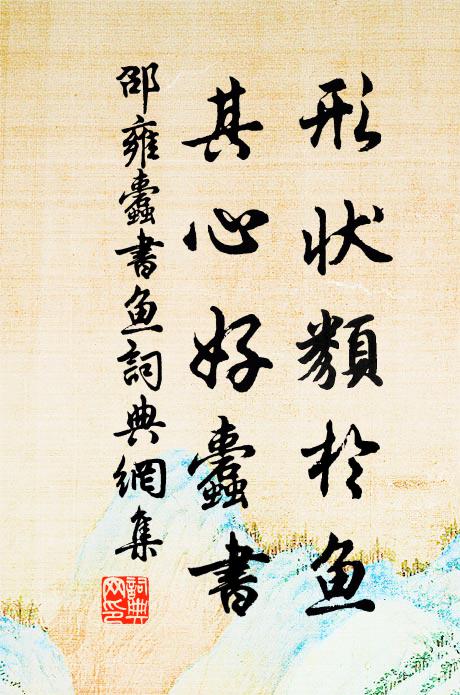 形狀類於魚
其心好蠹書
邵雍蠹書魚詞典網集